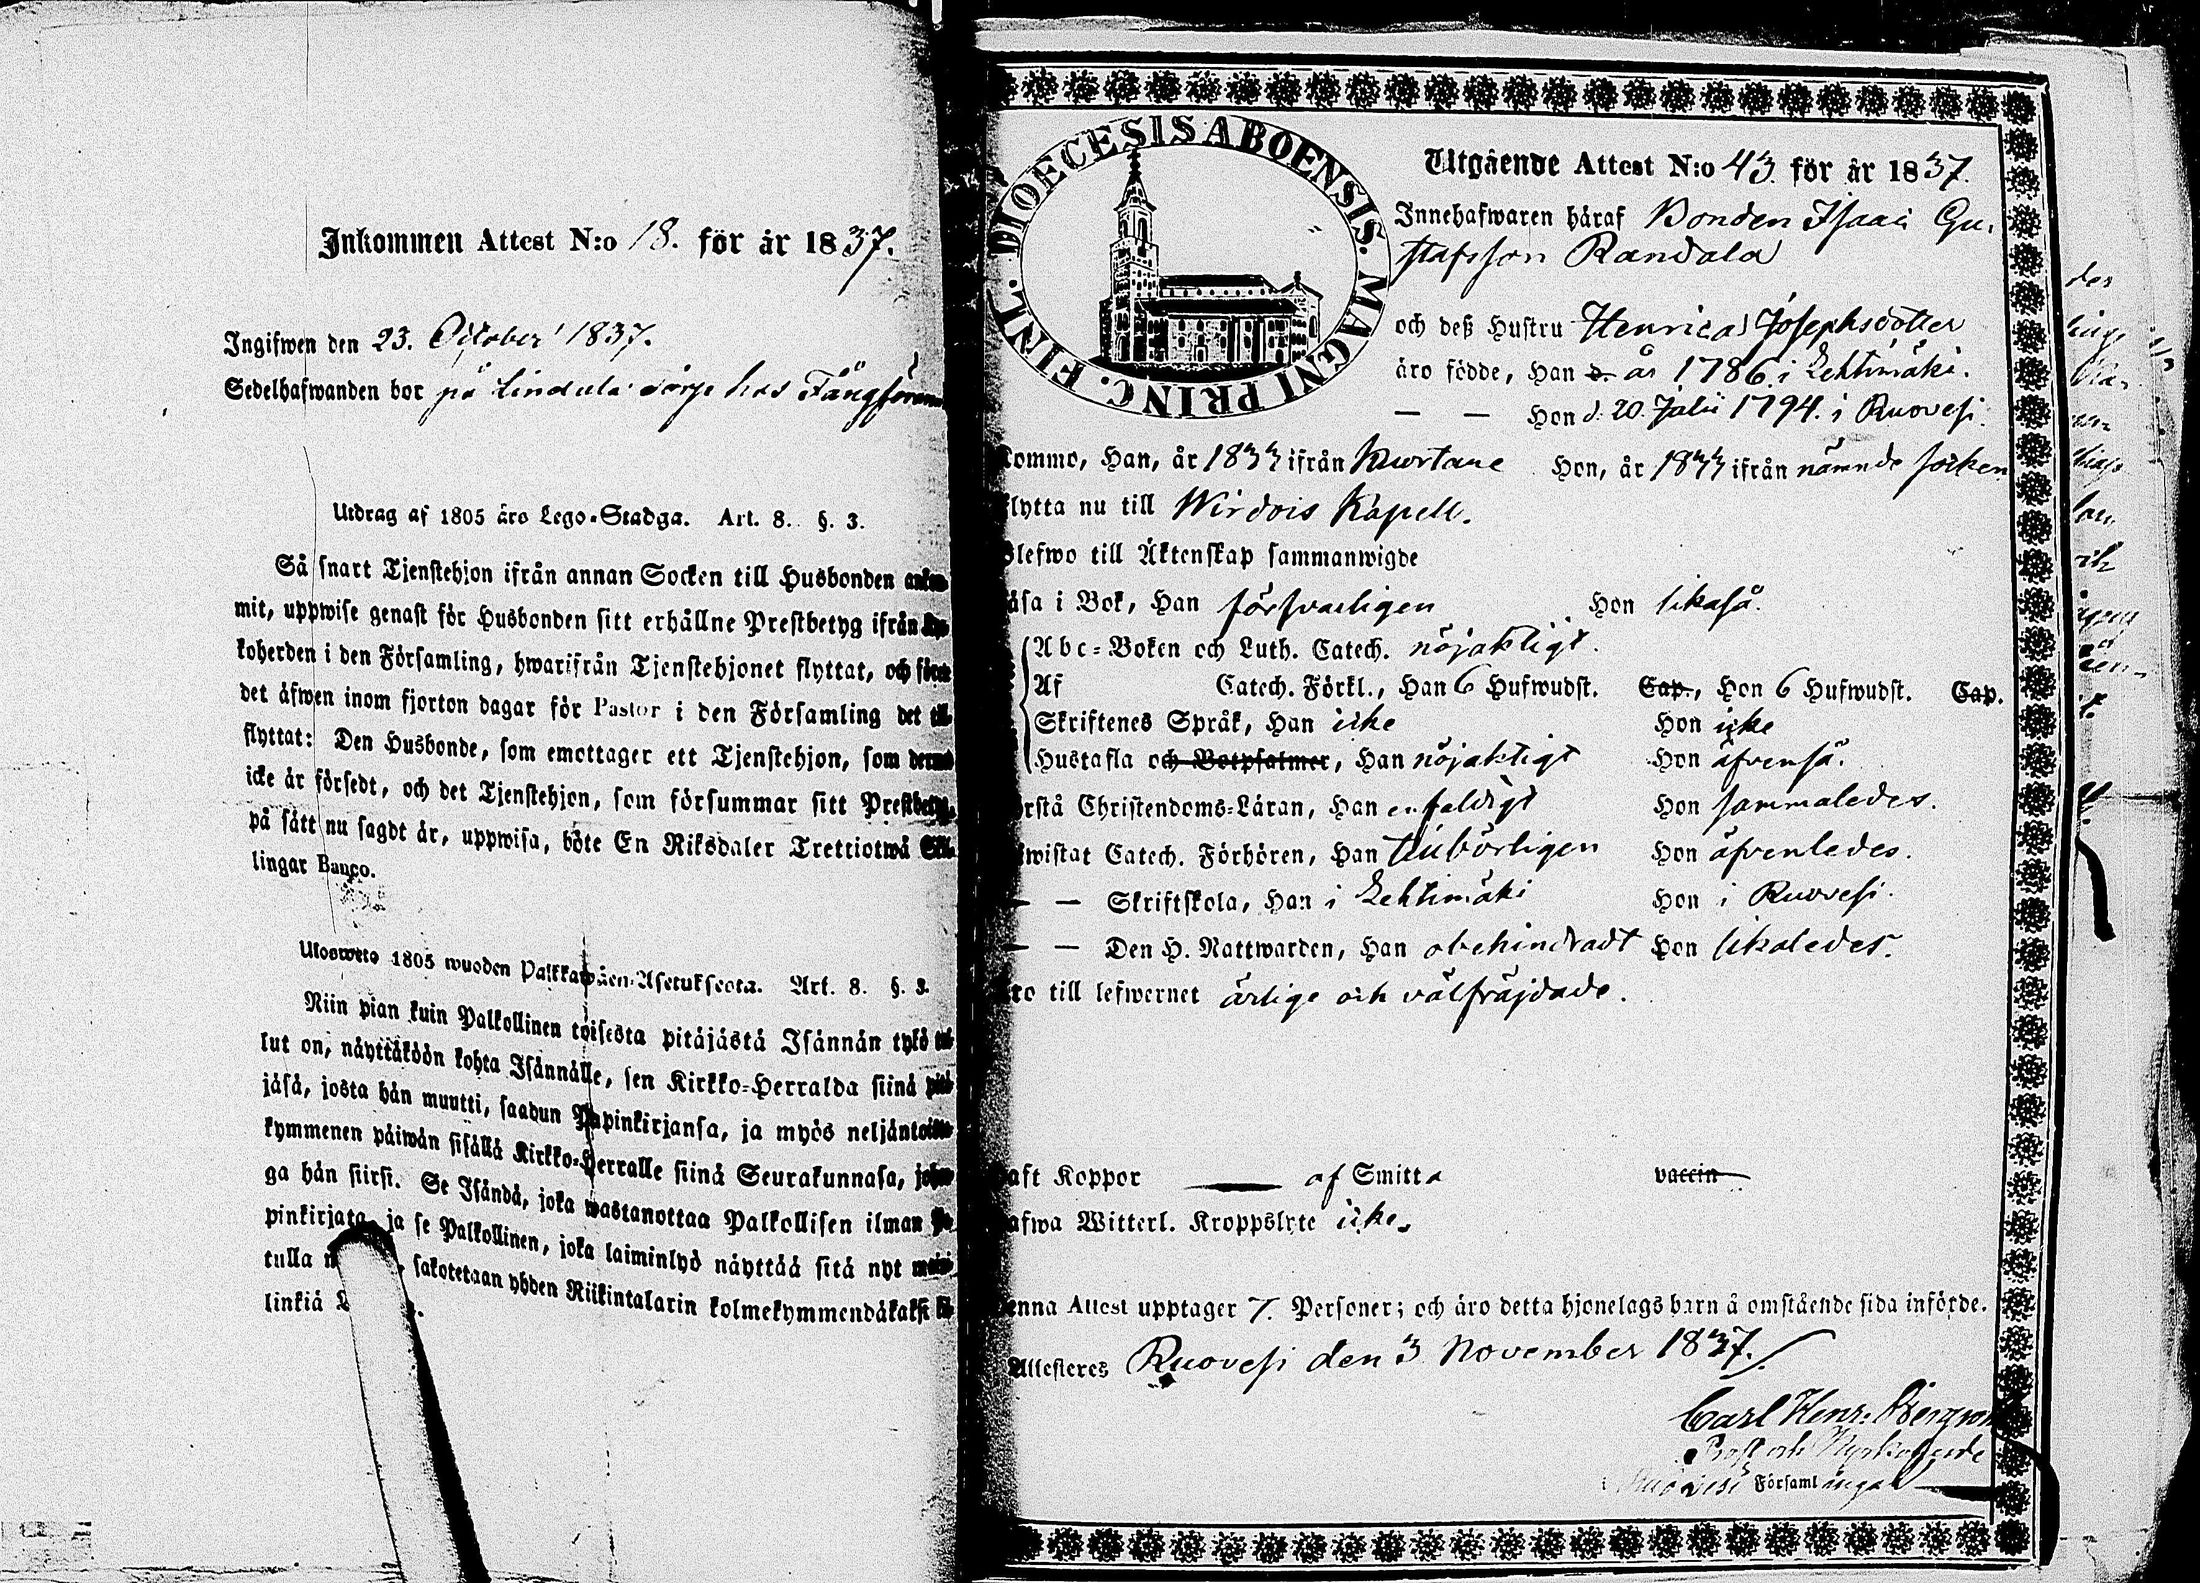 Inkommen Attest N:o 18. för år 1837.
Ingifwen den 23. October 1837.
Sedelhafwanden bor på Lindula torp hos
Utdrag af 1805 års Lego-Stadga. Art. 8. §. 3.
Så snart Tjenstehjon ifrån annan Socken till Husbonden
mit, uppwise genast för Husbonden sitt erhållne Prestbetyg ifrån
koherden i den Församling, hwarifrån Tjenstehjonet flyttat, och
det äfwen inom fjorton dagar för Pastor i den Församling det
flyttat: Den Husbonde, som emottager ett Tjenstehjon, som
icke är försedt, och det Tjenstehjon, som försummar sitt
på sätt nu sagdt är, uppwisa, böte En Riksdaler Trettiotwå
lingar Banco.
Uloswete 1805 wuoden Palkkawäen-Asetuksesta. Art. 8. §. 3.
Niin pian kuin Palkollinen toisesta pitäjästä Isännän tykö
lut on, näyttäköön kohta Isännälle, sen Kirkko-Herralda siinä
jäsä, josta hän muutti, saadun Papinkirjansa, ja myös
kymmenen päiwän sisällä Kirkko-Herralle siinä Seurakunnasa,
ga hän siirsi. Se Isändä, joka wastanottaa Palkollisen ilman
pinkirjata, ja se Palkollinen, joka laiminlyö näyttää sitä nyt
tulla sakotetaan yhden Riikintalarin kolmekymmendäkaksi
linkiä
DIOECESIS ABOENSIS. MAGNI PRINC. FINL.
Utgående Attest N:o 43. för år 1837.
Innehafwaren häraf Bonden Isaac Gu-
stafsson Randala
och deß Hustru Henrica Josephsdotter
äro födde, Han d. år 1786 i Lehtimäki.
— — Hon d. 20 Julii 1794. i Ruovesi.
kommo, Han, år 1833 ifrån Kuortane Hon, år 1833 ifrån nämnde socken
flytta nu till Wirdois Kapell.
Blefwo till Äktenskap sammanwigde
läsa i Bok, Han försvarligen Hon likaså.
Abc-Boken och Luth. Catech. nöjaktigt.
Af Catech. Förkl., Han 6 Hufwudst. Cap., Hon 6 Hufwudst. Cap.
Skriftenes Språk, Han icke Hon icke
Hustafla och Botpsalmer, Han nöjaktigt Hon äfvenså.
förstå Christendoms-Läran, Han enfaldigt Hon sammaledes.
bewistat Catech. Förhören, Han tillbörligen Hon äfvenledes.
— — Skriftskola, Han i Lehtimäki Hon i Ruovesi.
— — Den H. Nattwarden, Han obehindradt Hon likaledes.
äro till lefwernet ärlige och välfräjdade.
haft Koppor — af Smitta vaccin
hafwa Witterl. Kroppslyte icke.
Denna Attest upptager 7. Personer; och äro detta hjonelags barn å omstående sida införde.
Attesteres Ruovesi den 3 November 1837.
Carl Henr. Bergroth
Prost och Kyrkoherde
Ruovesi Församlingar